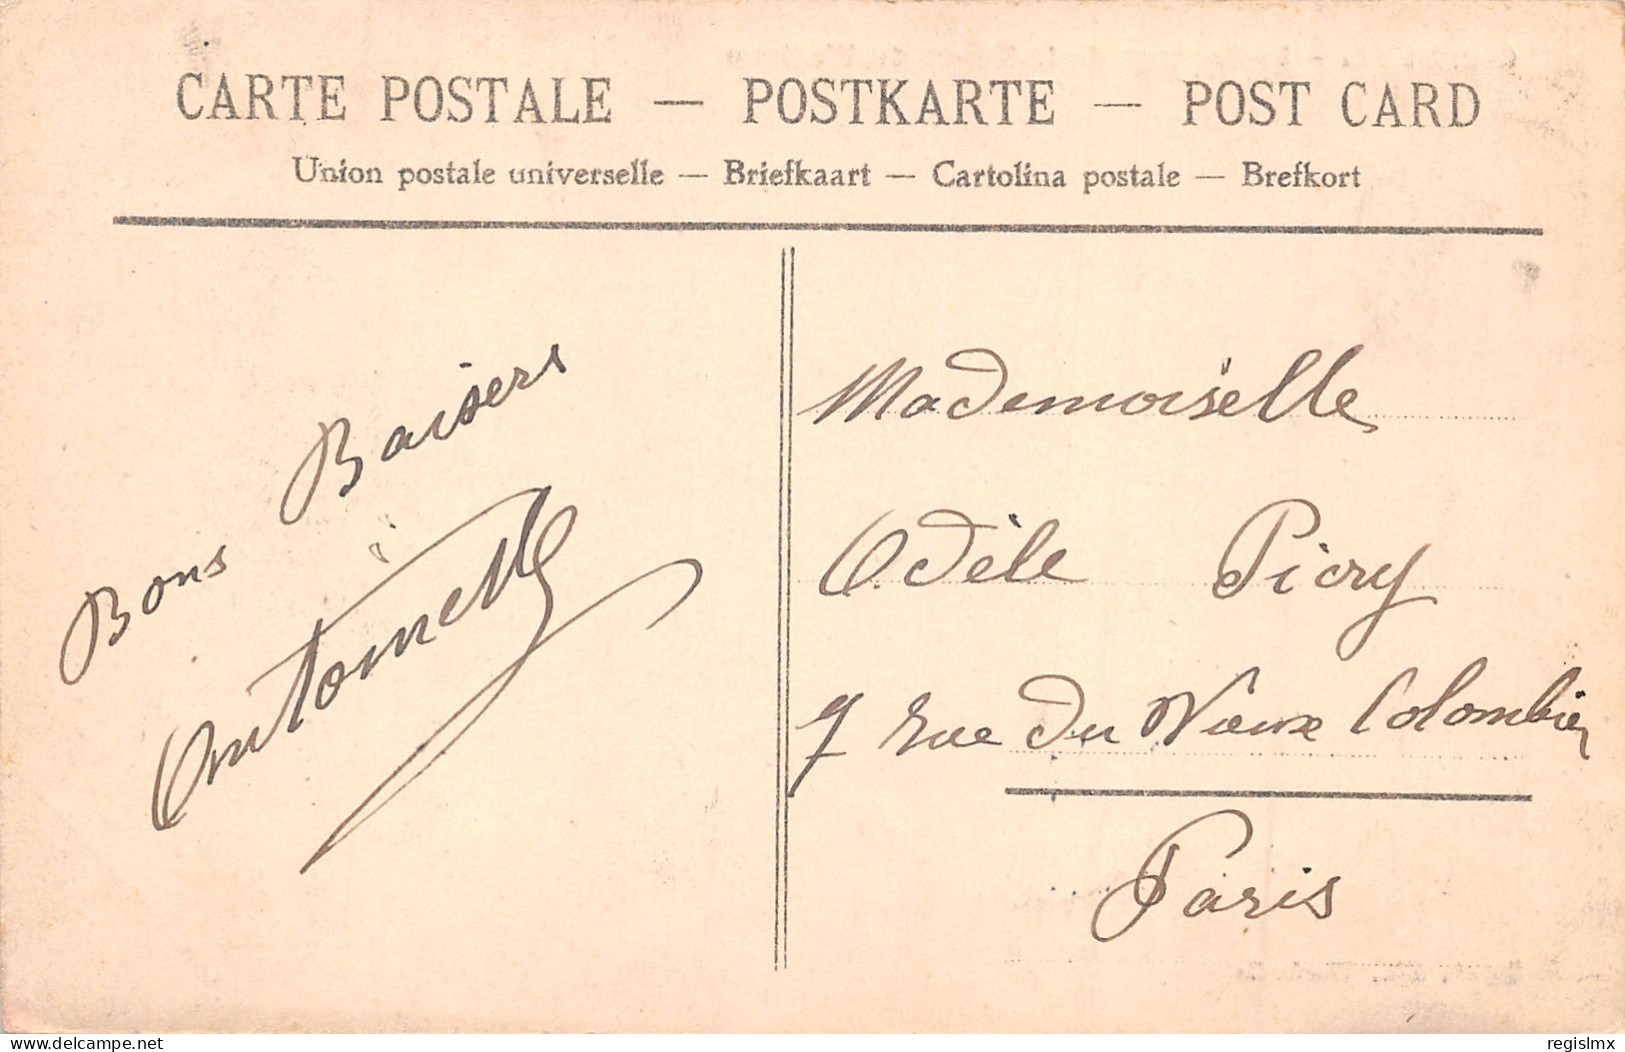 CARTE POSTALE — POSTKARTE — POST CARD
Union postale universelle — Briefkaart — Cartolina postale — Brefkort
Bons Baisers
Antoinette
Mademoiselle
Odèle Piory
7 rue du Vieux Colombier
Paris
www.delcampe.net
regislmx